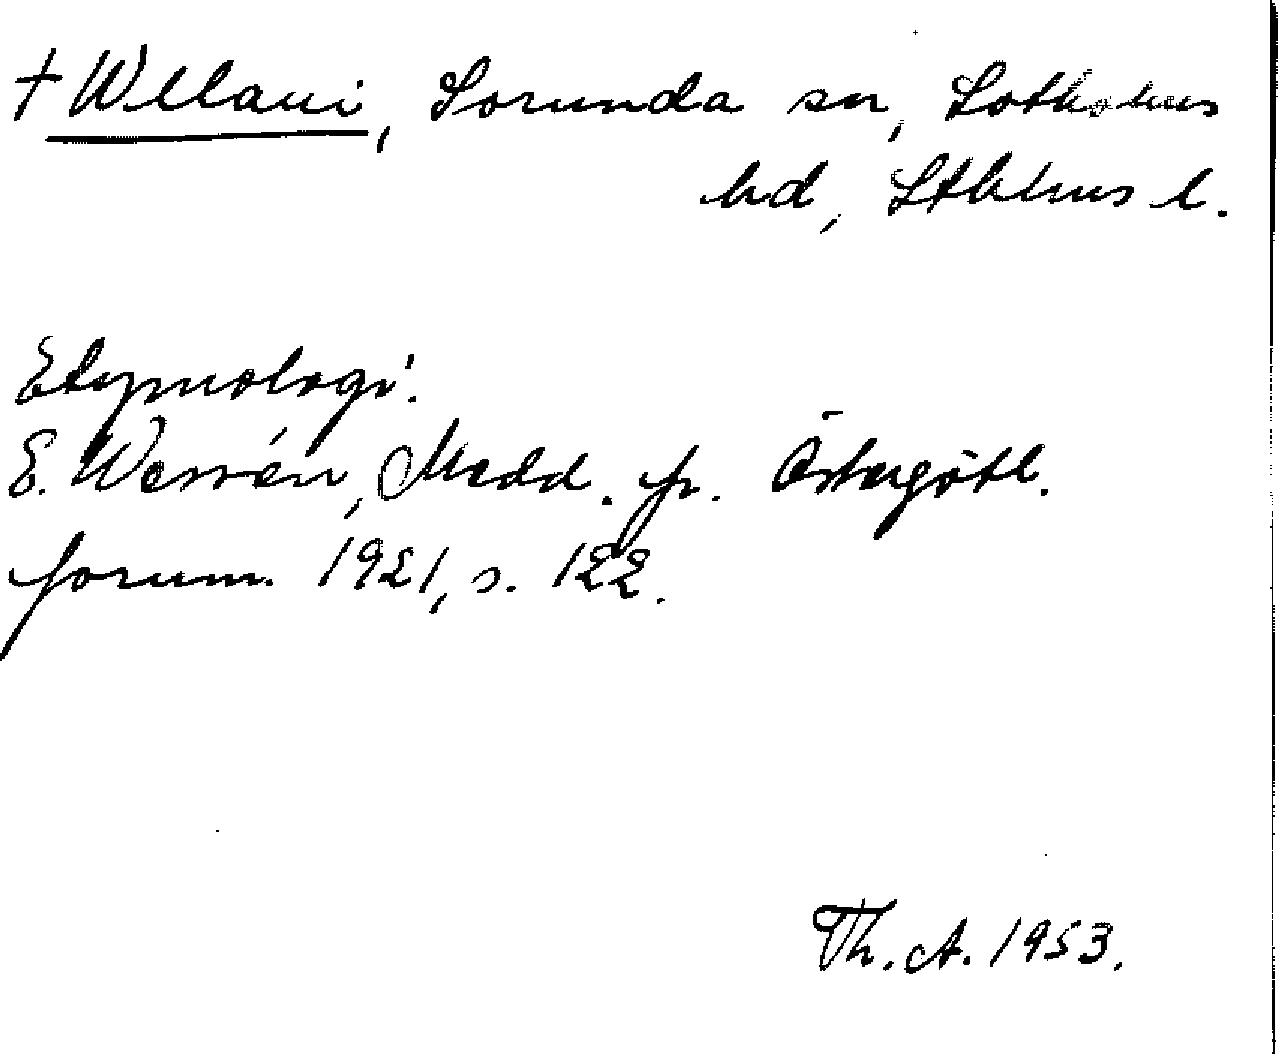 † Wllaui, Sorunda sn, Sotholms
hd, Sthlms l.
Etymologi:
E. Wessén, Medd. fr. Östergötl.
fornm. 1921, s. 122.
Th. A. 1953.